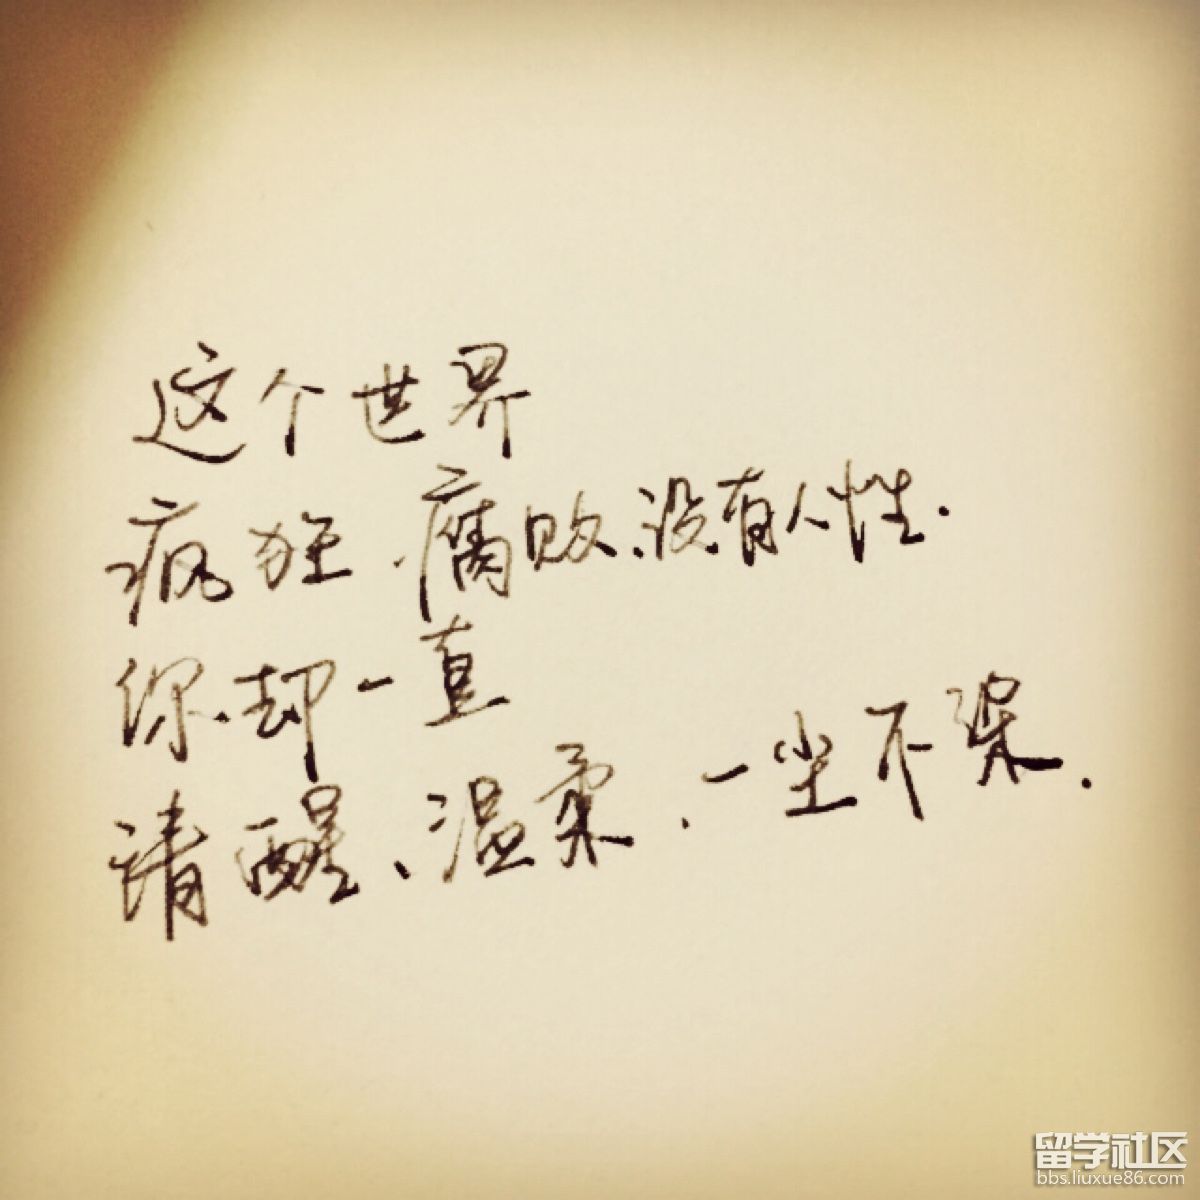 这个世界
疯狂、腐败、没有人性.
你却一直
清醒、温柔、一尘不染.
留学社区
bbs.liuxue86.com